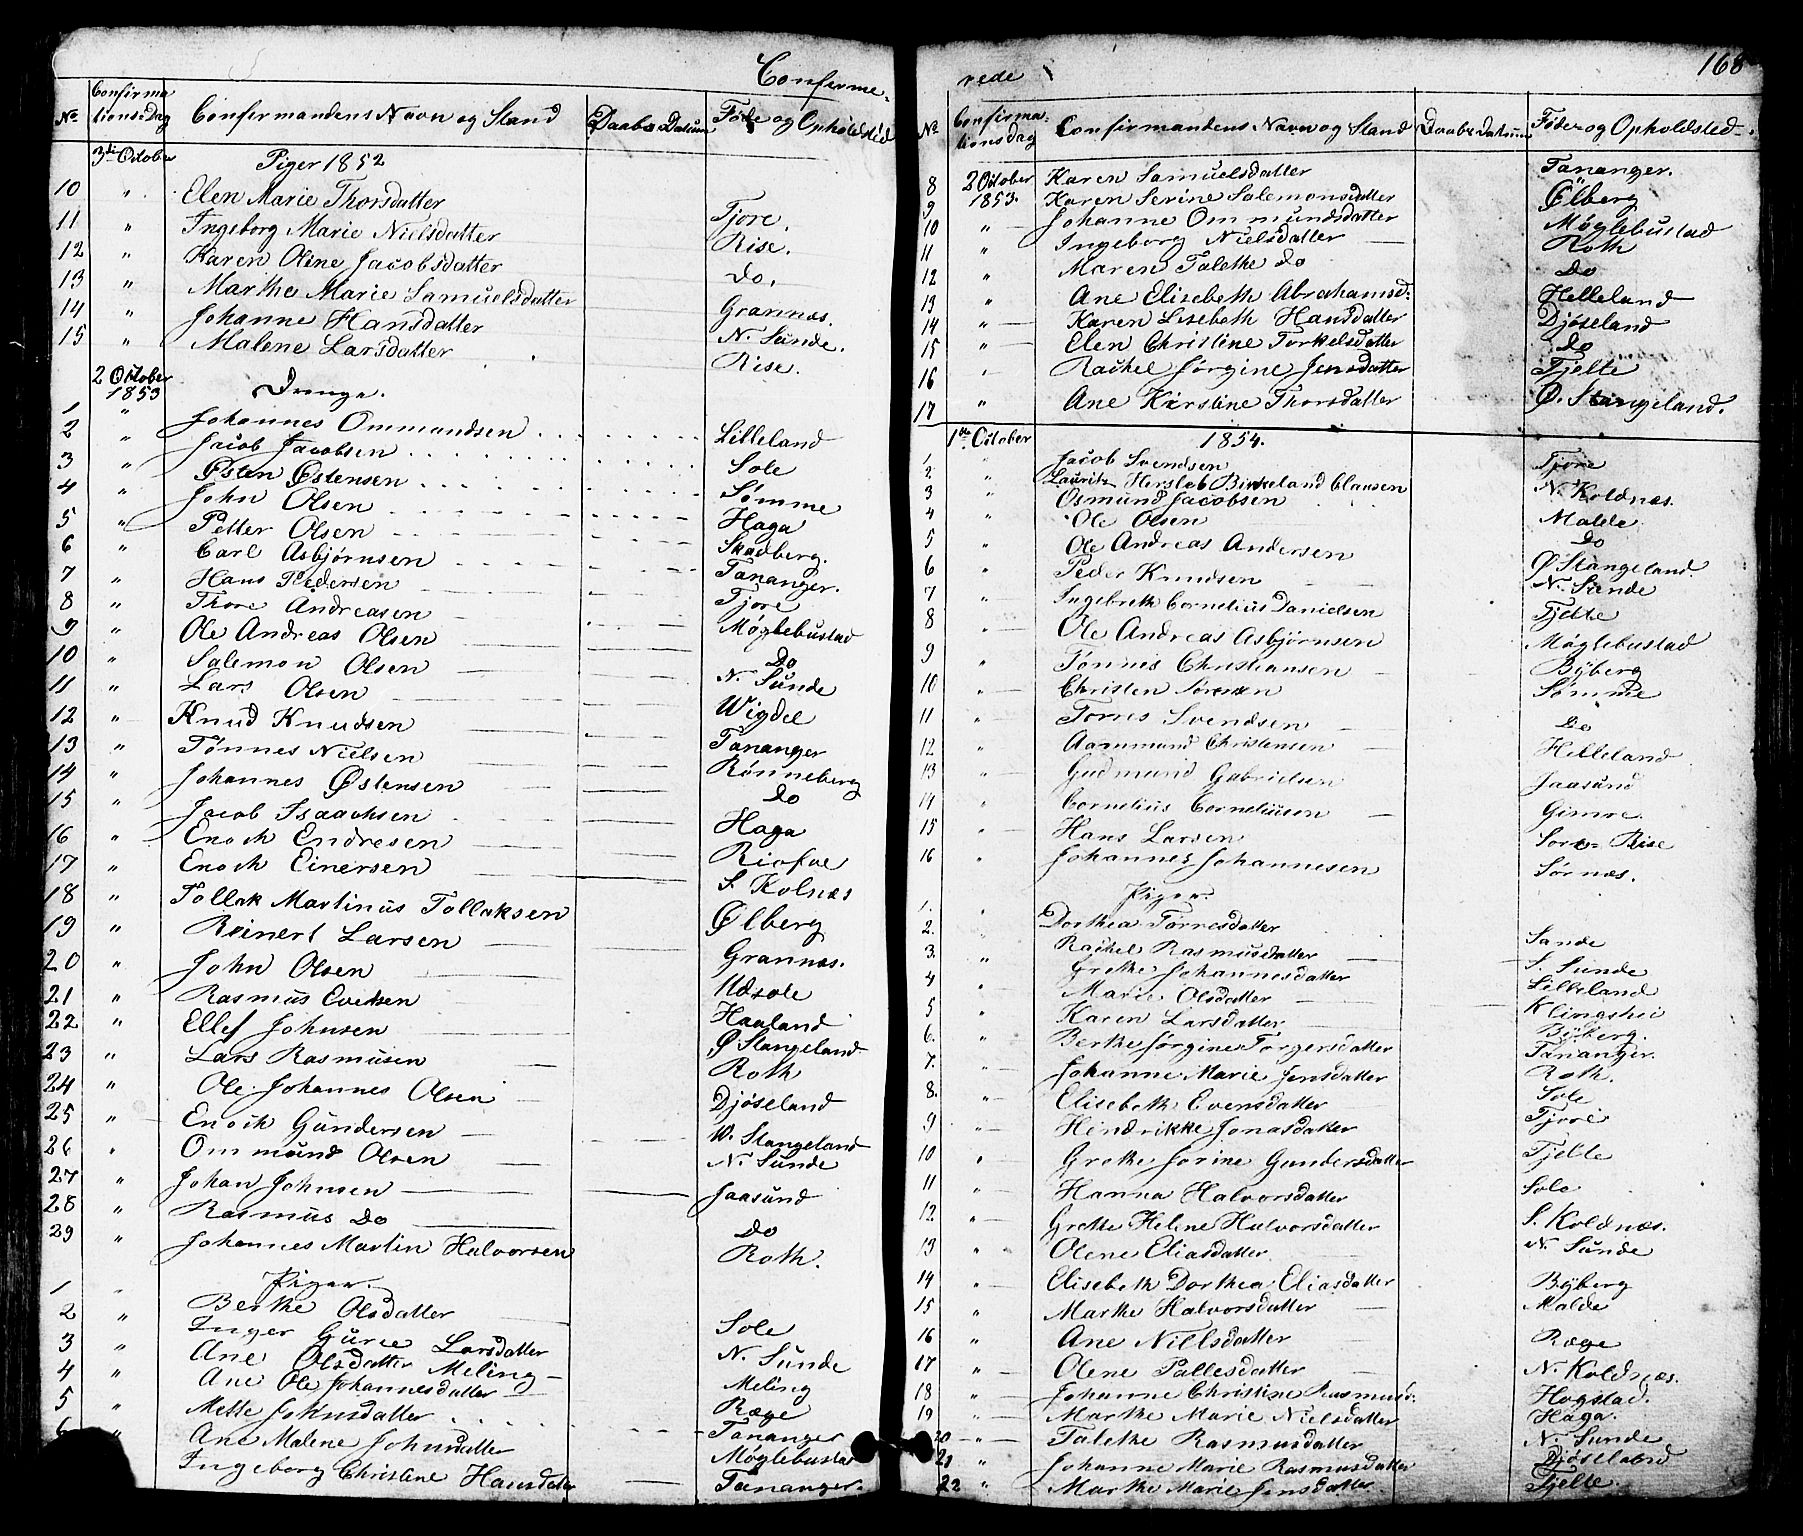 Confirme-
No Confirmationsdag Confirmandens Navn og Stand Daabs Datum Føde og Opholdsted
3die October Piger 1852
10 " Elen Marie Thorsdatter Tjore.
11 " Ingeborg Marie Nielsdatter Rise.
12 " Karen Oline Jacobsdatter do.
13 " Marthe Marie Samuelsdatter Grannæs.
14 " Johanne Hansdatter N. Sunde.
15 " Malene Larsdatter Rise.
2 October 1853 Drenge.
1 " Johannes Ommundsen Lilleland
2 " Jacob Jacobsen Sole
3 " Østen Østensen Sømme
4 " John Olsen Haga
5 " Petter Olsen Skadberg.
6 " Carl Asbjørnsen Tananger.
7 " Hans Pedersen Tjore
8 " Thore Andreasen Møglebustad
9 " Ole Andreas Olsen Do
10 " Salemon Olsen N. Sunde
11 " Lars Olsen Wigdel
12 " Knud Knudsen Tananger
13 " Tønnes Nielsen Rønneberg
14 " Johannes Østensen do
15 " Jacob Isaachsen Haga
16 " Enoch Endresen
17 " Enoch Einersen S. Kolnæs
18 " Tollak Martinus Tollaksen Ølberg
19 " Reinert Larsen Grannæs.
20 " John Olsen Udsole
21 " Rasmus Evensen Haaland
22 " Ellef Johnsen Ø Stangeland
23 " Lars Rasmusen Roth
24 " Ole Johannes Olsen Djøseland
25 " Enoch Gundersen W. Stangeland
26 " Ommund Olsen N. Sunde
27 " Johan Johnsen Jaasund
28 " Rasmus Do Do
29 " Johannes Martin Halvorsen Roth.
Piger.
1 " Berthe Olsdatter Sole
2 " Inger Gurie Larsdatter N. Sunde
3 " Ane Olsdatter Meling Meling
4 " Ane Ole Johannesdatter Ræge
5 " Mette Johnsdatter Tananger
6 " Ane Malene Johnsdatter Møglebustad
Ingeborg Christine Hansdatter Tananger.
rede
168
No Confirmationsdag Confirmandens Navn og Stand Daabsdatum Føde og Opholdsted
8 2 October 1853. Karen Samuelsdatter Tananger.
9 Karen Serine Salemonsdatter Ølberg
10 " Johanne Ommundsdatter Møglebustad
11 " Ingeborg Nielsdatter Roth
12 " Maren Talethe do Do
13 " Ane Elisebeth Abrahamsd: Helleland
14 " Karen Lisebeth Hansdatter Djøseland
15 " Elen Christine Torkelsdatter do
16 " Rachel Jørgine Jensdatter Tjelte
17 " Ane Kirstine Thorsdatter Ø. Stangeland.
1ste October 1854.
1 " Jacob Svendsen Tjore
2 " Lauritz Herslab Birkeland Clausen N. Koldnæs.
3 " Osmund Jacobsen Malde
4 " Ole Olsen do
5 " Ole Andreas Andersen Ø Stangeland.
6 " Peder Knudsen N. Sunde
7 " Ingebreth Cornelius Danielsen Tjelte
8 " Ole Andreas Asbjørnsen Møglebustad
9 " Tønnis Christiansen Byberg
10 " Christen Sørensen Sømme
11 " Torris Svendsen Do
12 " Aamund Christensen Helleland
13 " Gudmund Gabrielsen Jaasund
14 " Cornelius Corneliusen Gimre
15 " Hans Larsen Rise
16 " Johannes Johannesen Sørnæs.
Piger.
1. " Dorthea Torresdatter Sande
2. " Rachel Rasmusdatter S. Sunde
3. " Grethe Johannesdatter Lilleland
4 " Marie Olsdatter Klingshei
5 " Karen Larsdatter Byberg.
6. " Berthe Jørgine Torgersdatter Tananger.
7. " Johanne Marie Jensdatter Roth.
8. " Elisebeth Evensdatter Sole
9 " Hendrikke Jonasdatter Tjore
10 " Grethe Jorine Gundersdatter Tjelte
11 " Hanna Halvorsdatter Sole
12. " Grethe Helene Halvorsdatter S. Koldnæs.
13 " Olene Eliasdatter N. Sunde
14 " Elisebeth Dorthea Eliasdatter Byberg
15 " Marthe Halvorsdatter Malde
16 " Ane Nillsdatter Ræge
17 " Olene Pallesdatter N. Koldnæs.
18 " Johanne Christine Rasmusd. Hogstad.
19 " Marthe Marie Nielsdatter Haga.
20 " Talethe Rasmusdatter N. Sunde
21 " Johanne Marie Rasmusdatter Djøseland
22 " Marthe Marie Jensdatter Tjelte